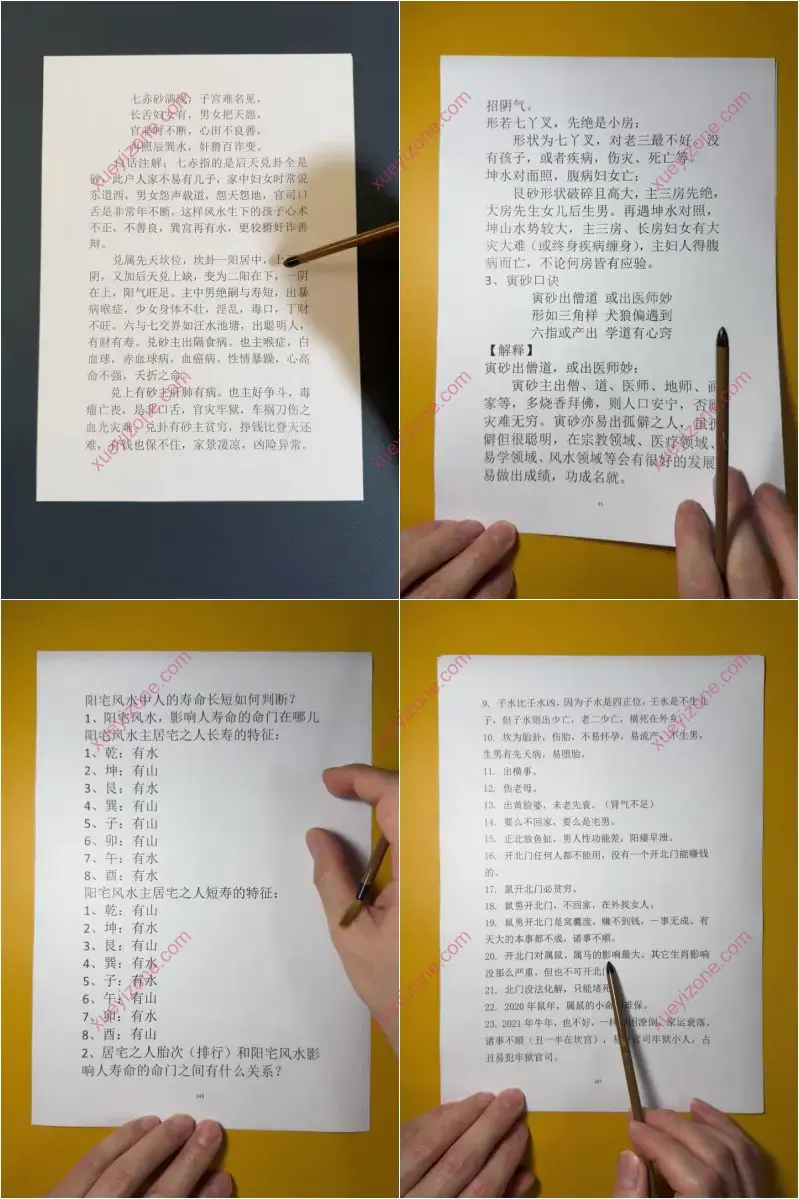 七赤砂满现，子宫难名见，
长舌妇女有，男女把天怨，
官来时不断，心田不良善，
再照辰巽水，奸猾百诈变。
白话注解：七赤指的是后天兑卦全是
砂，此户人家不易有儿子，家中妇女时常说
东道西，男女怨声载道，怨天怨地，官司口
舌是非常年不断，这样风水生下的孩子心术
不正，不善良，巽宫再有水，更狡猾奸诈善
辩。
兑属先天坎位，坎卦一阳居中，上
阴，又加后天兑上缺，变为二阳在下，一阴
在上，阳气旺足。主中男绝嗣与寿短，出暴
病喉症，少女身体不壮，淫乱，毒口，丁财
不旺。六与七交界如汪水池塘，出聪明人，
有财有寿。兑砂主出隔食病。也主喉症，白
血球，赤血球病，血癌病。性情暴躁，心高
命不强，夭折之命。
兑上有砂主肝肺有病。也主好争斗，毒
瘤亡丧，是非口舌，官灾牢狱，车祸刀伤之
血光灾难。兑卦有砂主贫穷，挣钱比登天还
难，有钱也保不住，家景凄凉，凶险异常。
招阴气。
形若七丫叉，先绝是小房；
形状为七丫叉，对老三最不好，没
有孩子，或者疾病，伤灾、死亡等。
坤水对面照，腹病妇女亡；
艮砂形状破碎且高大，主三房先绝，
大房先生女儿后生男。再遇坤水对照，
坤山水势较大，主三房、长房妇女有大
灾大难（或终身疾病缠身），主妇人得腹
病而亡，不论何房皆有应验。
3、寅砂口诀
寅砂出僧道 或出医师妙
形如三角样 犬狼偏遇到
六指或产出 学道有心窍
【解释】
寅砂出僧道，或出医师妙：
寅砂主出僧、道、医师、地师、画
家等，多烧香拜佛，则人口安宁，否
灾难无穷。寅砂亦易出孤僻之人，虽
僻但很聪明，在宗教领域、医疗领域、
易学领域、风水领域等会有很好的发展
易做出成绩，功成名就。
阳宅风水中人的寿命长短如何判断？
1、阳宅风水，影响人寿命的命门在哪儿
阳宅风水主居宅之人长寿的特征：
1、乾：有水
2、坤：有山
3、艮：有水
4、巽：有山
5、子：有山
6、卯：有山
7、午：有水
8、酉：有水
阳宅风水主居宅之人短寿的特征：
1、乾：有山
2、坤：有水
3、艮：有山
4、巽：有水
5、子：有水
6、午：有山
7、卯：有水
8、酉：有山
2、居宅之人胎次（排行）和阳宅风水影
响人寿命的命门之间有什么关系？
9. 子水比壬水凶，因为子水是四正位，壬水是不生贵
子，但子水则出少亡，老二少亡，横死在外乡。
10. 坎为胎卦，伤胎，不易怀孕，易流产，不生男，
生男有先天病，易堕胎。
11. 出横事。
12. 伤老母。
13. 出黄脸婆、未老先衰。（肾气不足）
14. 要么不回家，要么是宅男。
15. 正北放鱼缸，男人性功能差，阳痿早泄。
16. 开北门任何人都不能用，没有一个开北门能赚钱
的。
17. 鼠开北门必贫穷。
18. 鼠男开北门、不回家，在外找女人。
19. 鼠男开北门是窝囊废，赚不到钱，一事无成。有
天大的本事都不成，诸事不顺。
20. 开北门对属鼠、属马的影响最大。其它生肖影响
没那么严重，但也不可开北门
21. 北门没法化解，只能堵死
22. 2020年鼠年，属鼠的小命难保。
23. 2021年牛年，也不好，一样穷困潦倒、家运衰落，
诸事不顺（丑一半在坎宫），易官司牢狱小人，占
丑易犯牢狱官司。